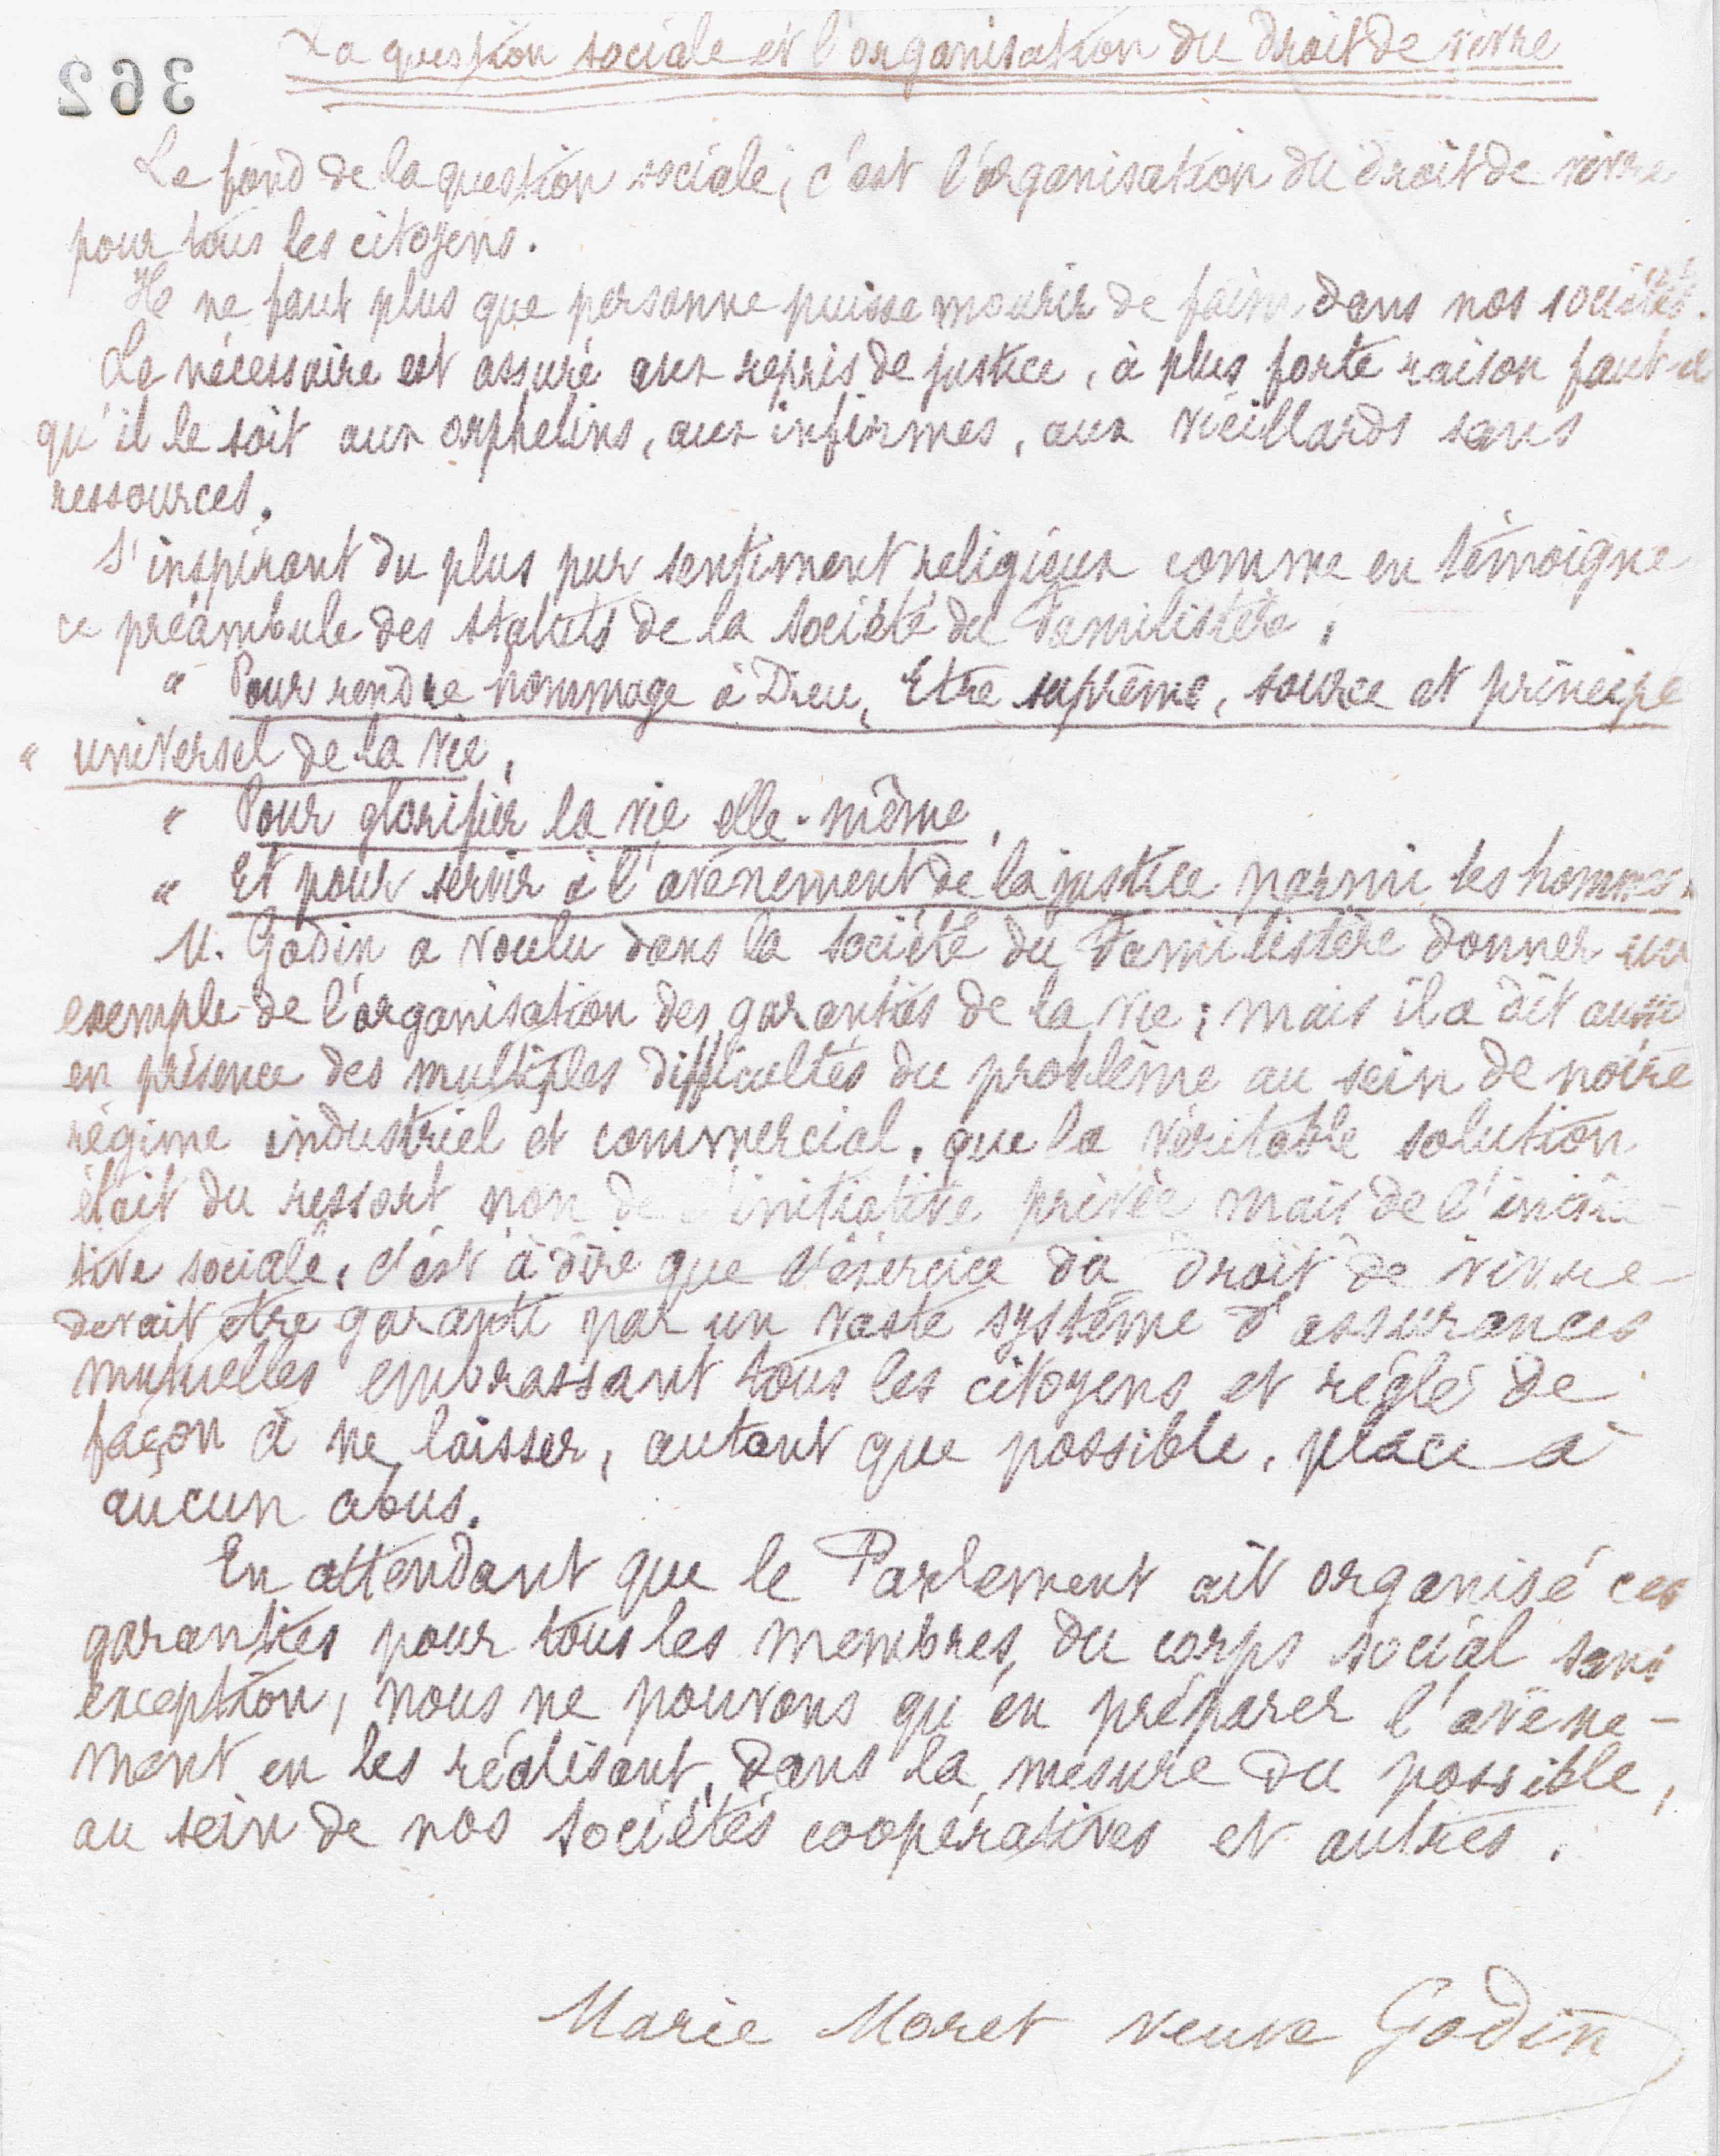 362
La question sociale et l'organisation du droit de vivre
Le fond de la question sociale, c'est l'organisation du droit de vivre
pour tous les citoyens.
Il ne faut plus que personne puisse mourir de faim dans nos sociétés.
Le nécessaire est assuré aux repris de justice, à plus forte raison faut-il
qu'il le soit aux orphelins, aux infirmes, aux vieillards sans
ressources.
S'inspirant du plus pur sentiment religieux comme en témoigne
ce préambule des statuts de la société du Familistère,
« Pour rendre hommage à Dieu, Etre suprême, source et principe
« universel de la vie,
« Pour glorifier la vie elle-même,
« Et pour servir à l'avènement de la justice parmi les hommes »
M. Godin a voulu dans la société du Familistère donner un
exemple de l'organisation des garanties de la vie ; mais il a dit aussi
en présence des multiples difficultés du problème au sein de notre
régime industriel et commercial, que la véritable solution
était du ressort non de l'initiative privée mais de l'initia-
tive sociale, c'est à dire que l'exercice du droit de vivre
devait être garanti par un vaste système d'assurances
mutuelles embrassant tous les citoyens et réglé de
façon à ne laisser, autant que possible, place à
aucun abus.
En attendant que le Parlement ait organisé ces
garanties pour tous les membres du corps social sans
exception, nous ne pouvons qu'en préparer l'avène-
ment en les réalisant, dans la mesure du possible,
au sein de nos sociétés coopératives et autres.
Marie Moret veuve Godin